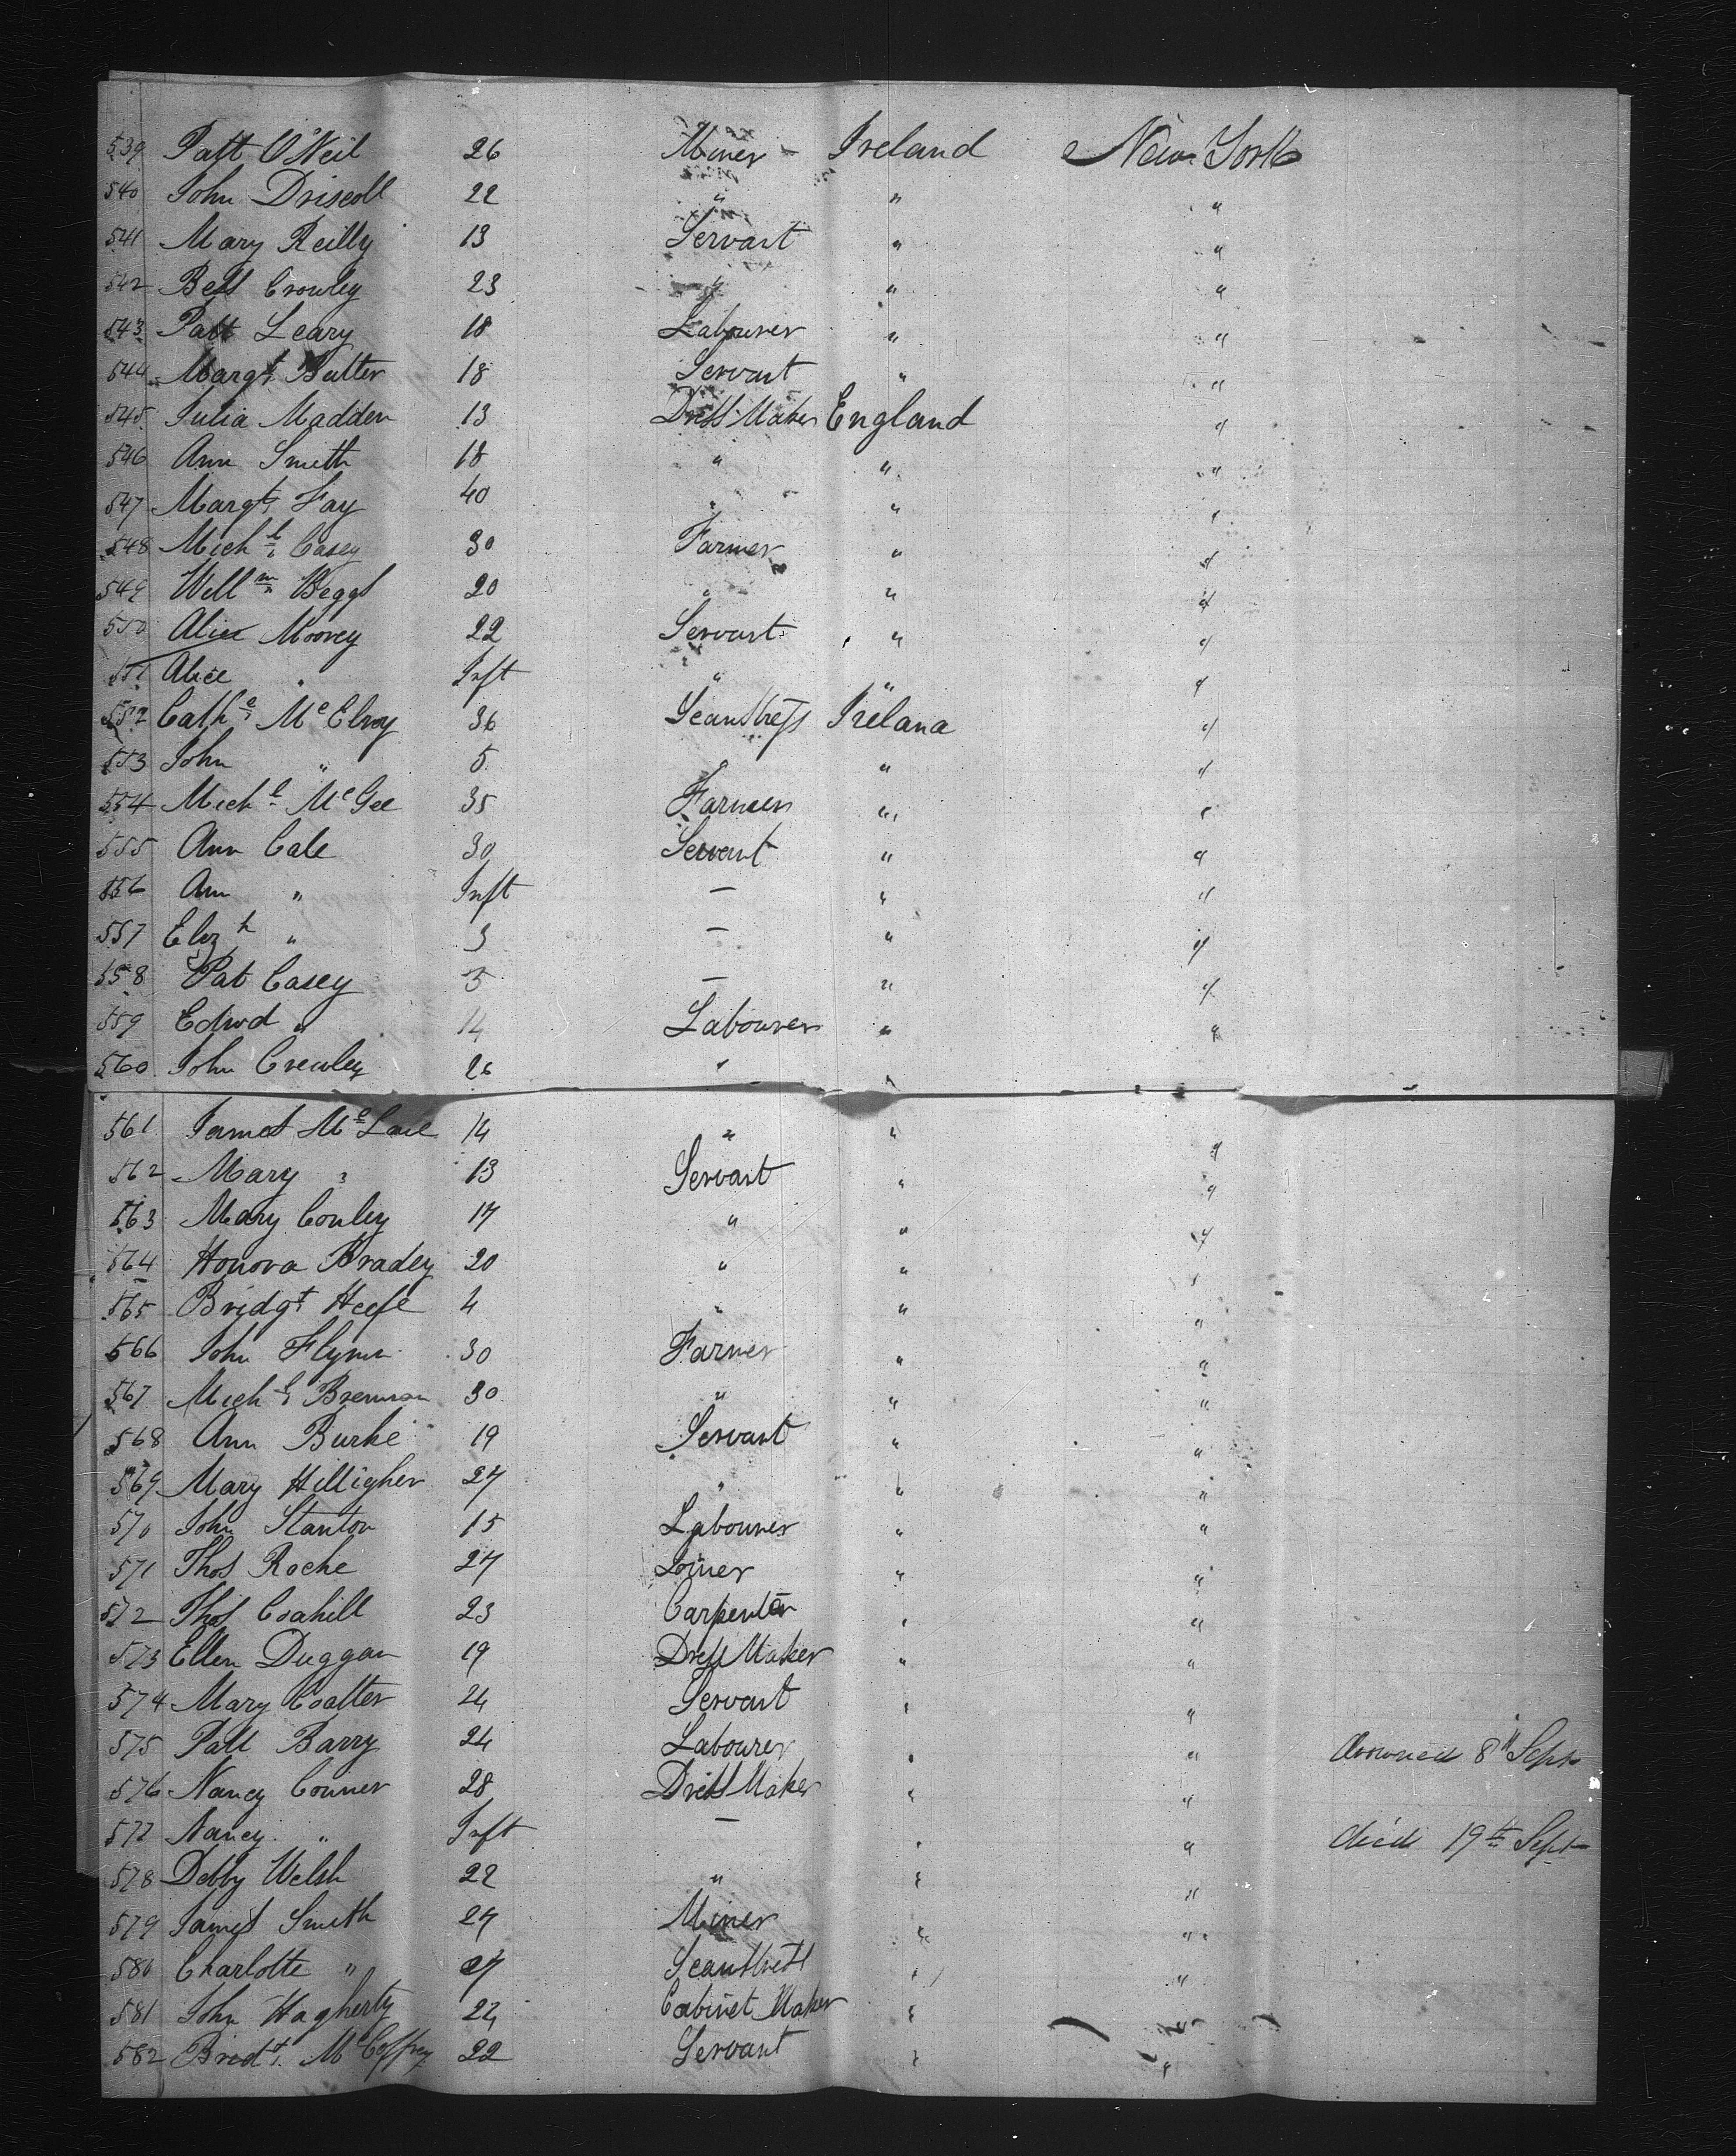 539 Patt O'Neil 26 Miner Ireland New York
540 John Driscoll 22 " " "
541 Mary Reilly 13 Servant " "
542 Bess Crowley 23 " " "
543 Patt Leary 18 Labourer " "
544 Margt Butler 18 Servant " "
545 Julia Madden 13 Dress Maker England "
546 Ann Smith 18 " " "
547 Margt Fay 40 " " "
548 Michl Casey 30 Farmer " "
549 Willm Beggs 20 " " "
550 Alice Moorey 22 Servant " "
551 Alice " Inft " " "
552 Cathe McElroy 36 Seamstress Ireland "
553 John " 5 " " "
554 Michl McGee 35 Farmer " "
555 Ann Cale 30 Servant " "
556 Ann " Inft — " "
557 Elizh " 3 — " "
558 Pat Casey 5 — " "
559 Edwd " 14 Labourer " "
560 John Crewley 26 " "
561 James McLace 14 " " "
562 Mary " 13 Servant " "
563 Mary Conley 17 " " "
564 Honora Bradey 20 " " "
565 Bridgt Heefe 4 " " "
566 John Flynn 30 Farmer " "
567 Michl Brennan 30 " " "
568 Ann Burke 19 Servant " "
569 Mary Hilligher 27 " " "
570 John Stanton 15 Labourer " "
571 Thos Roche 27 Joiner " "
572 Thos Coahill 23 Carpenter " "
573 Ellen Duggan 19 Dress Maker " "
574 Mary Coalter 24 Servant " "
575 Patt Barry 24 Labourer " " drowned 8th Sept
576 Nancy Conner 28 Dress Maker " "
577 Nancy " Inft — " " died 19th Sept
578 Debby Welsh 22 " " "
579 James Smith 27 Miner " "
580 Charlotte " 27 Seamstress " "
581 John Hagherty 24 Cabinet Maker " "
582 Bridt McCaffrey 22 Servant " "